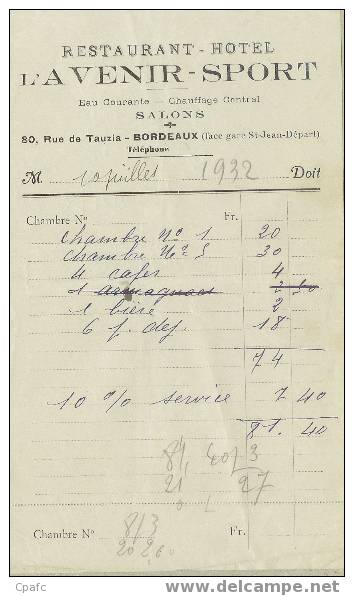 RESTAURANT - HOTEL
L'AVENIR - SPORT
Eau Courante — Chauffage Central
SALONS
80, Rue de Tauzia - BORDEAUX (face gare St-Jean-Départ)
Téléphone
M 1932 Doit
Chambre N° Fr.
chambre N° 1 20
chambre N° 5 30
4 cafes 4
1 armagnacs 2 50
1 biere 2
6 p. dej. 18
74
10 % service 7 40
81. 40
81, 40/3
21 27
Chambre N° 813 Fr.
20 2,60
Cpafc
www.delcampe.net